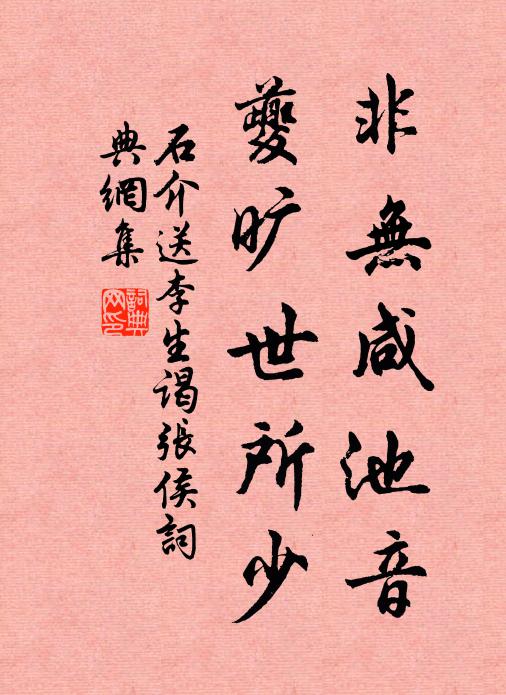 非無咸池音
夔旷世所少
石介送李生谒張侯詞
典網集
詞典网印